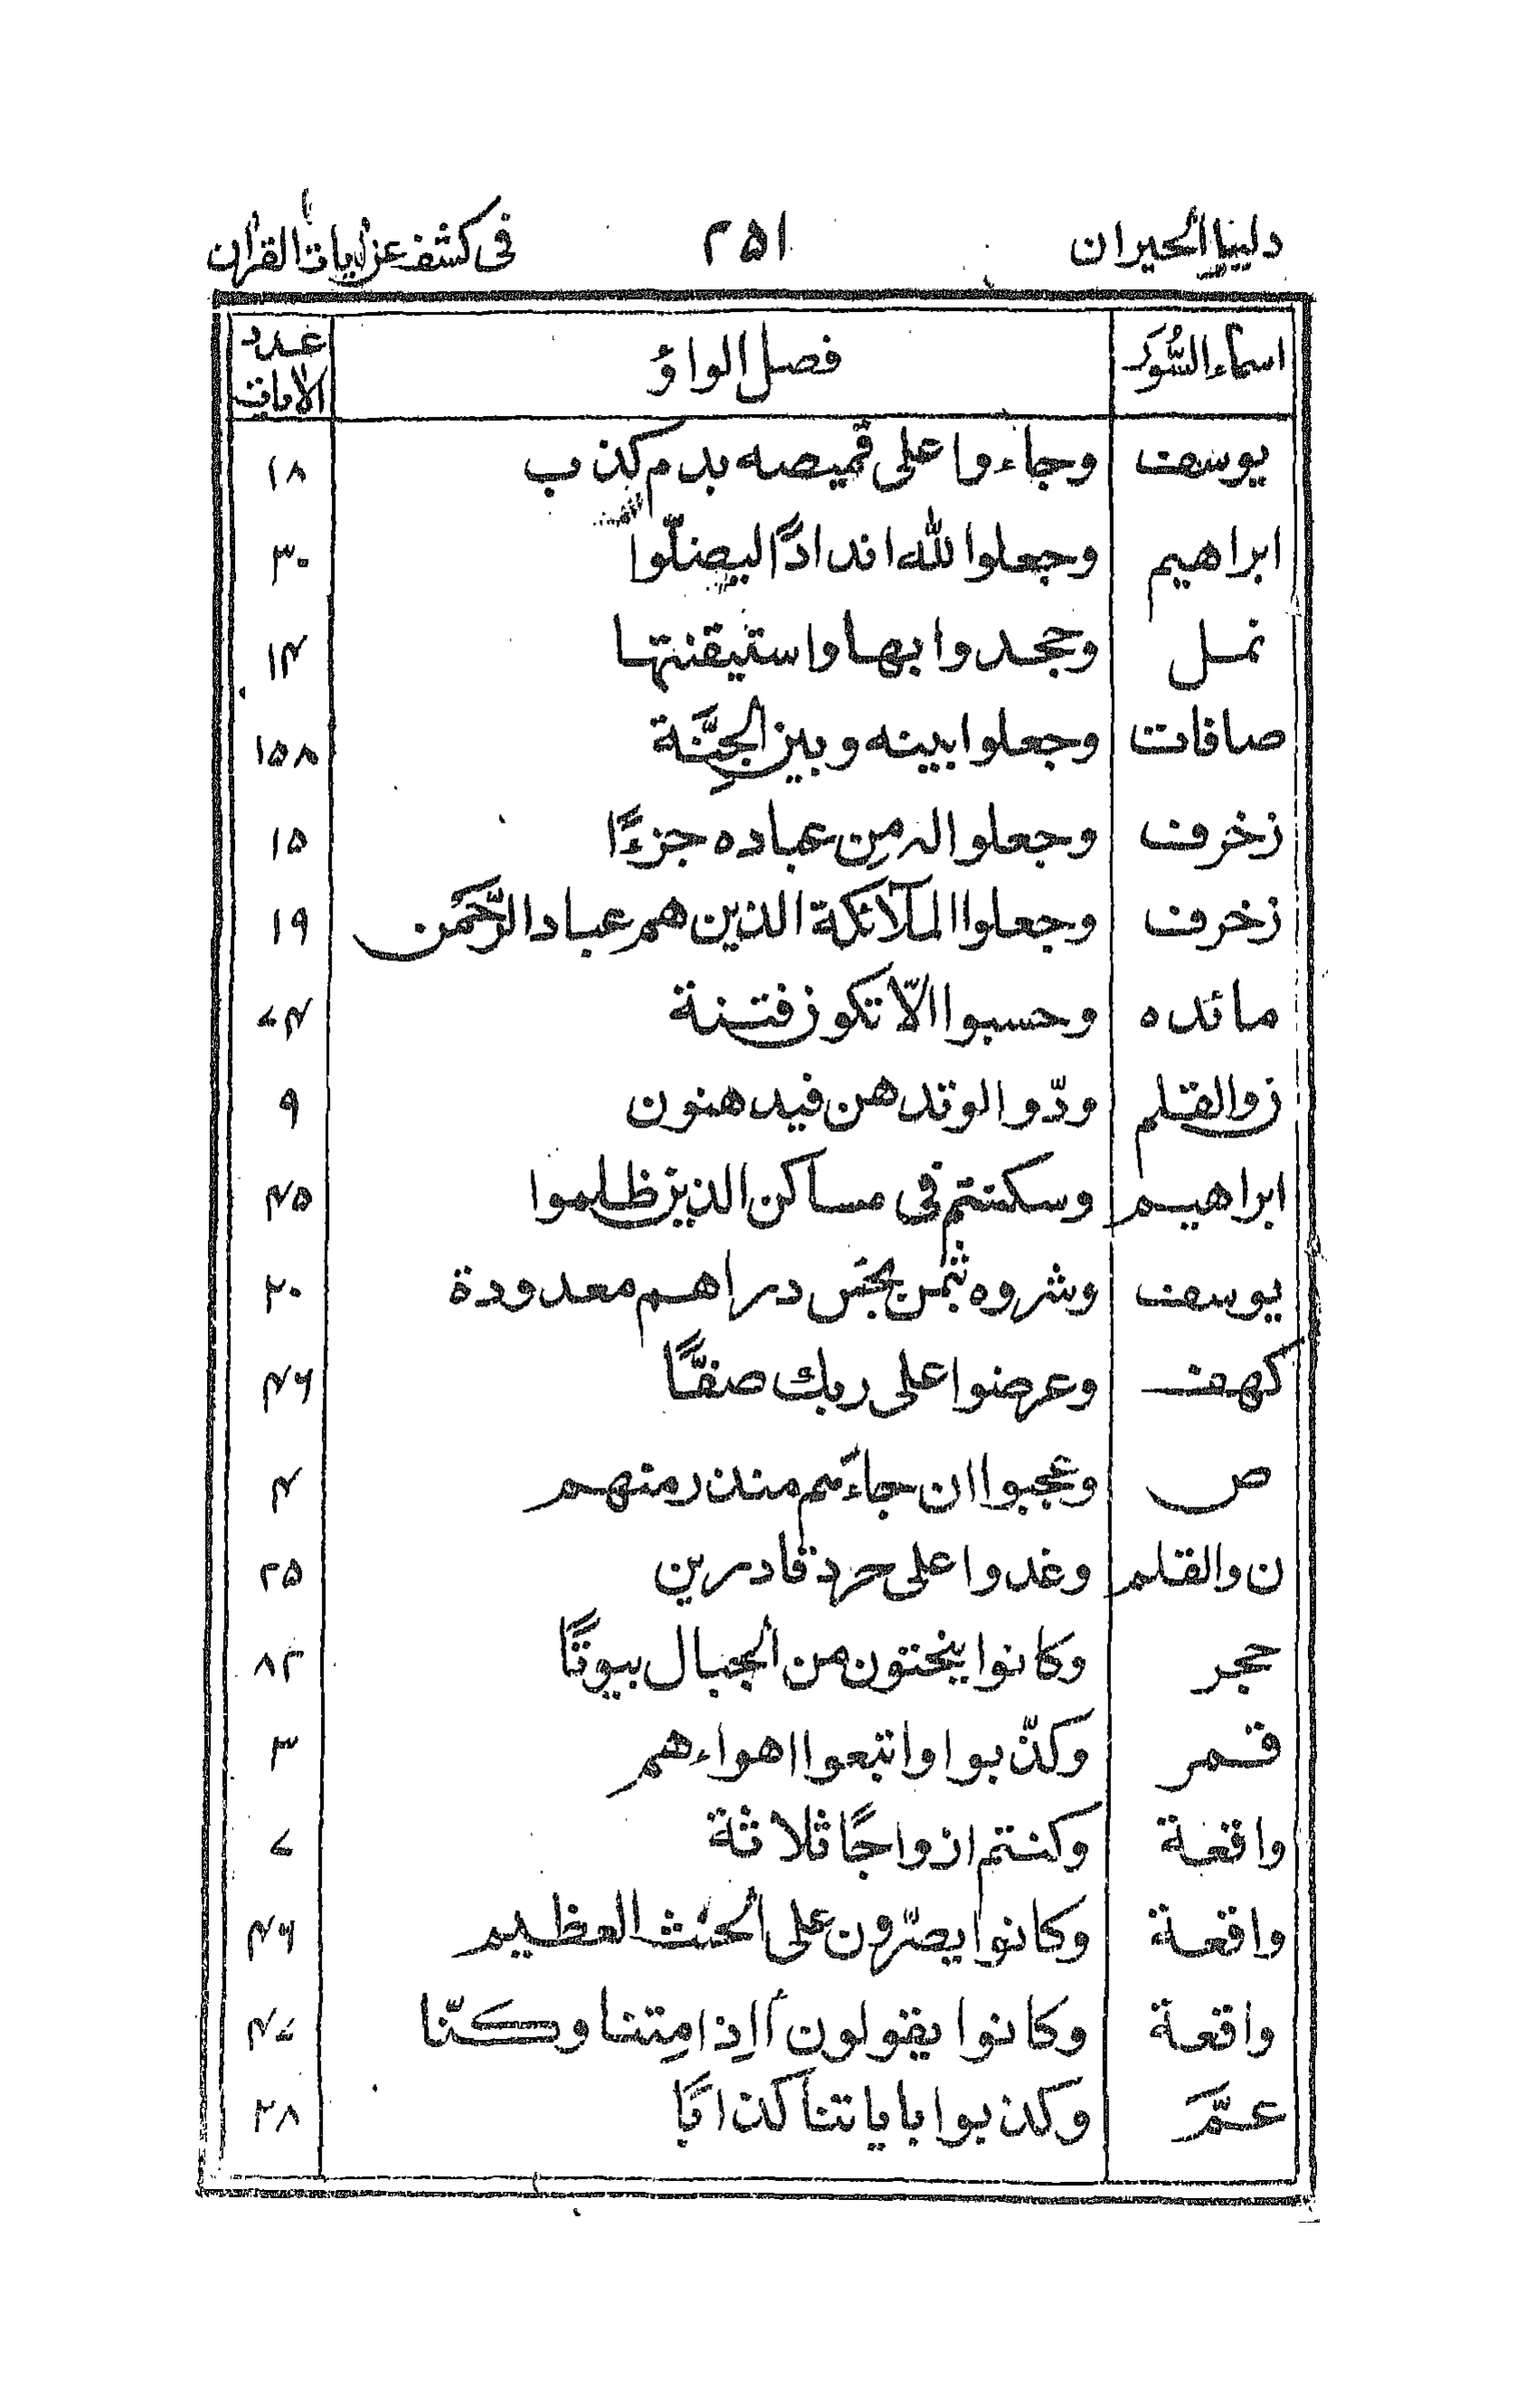 دليل الحيران ٢٥١ فى كشف عن آيات القرآن
اسماء السُّوَر فصل الواؤ عدد الآيات
يوسف وجاءوا على قميصه بدم كذب ١٨
ابراهيم وجعلوا لله اندادًا ليضلّوا ٣٠
نمل وجحدوا بها واستيقنتها ١۴
صافات وجعلوا بينه وبين الجِنَّة ١۵٨
زخرف وجعلوا له مِن عباده جزءًا ١۵
زخرف وجعلوا الملآئكة الذين هم عباد الرَّحمَن ١٩
مائده وحسبوا الّا تكون فتنة ٧۴
ن والقلم ودّوا لو تدهن فيدهنون ٩
ابراهيم وسكنتم فى مساكن الذين ظلموا ۴۵
يوسف وشروه بثمن بخس دراهم معدودة ٢٠
كهف وعرضوا على ربك صفًّا ۴۶
ص وعجبوا ان جاءَهم منذر منهم ۴
ن والقلم وغدوا على حرد قادرين ٢۵
حجر وكانوا ينحتون من الجبال بيوتًا ٨٢
قمر وكذّبوا واتبعوا اهواءهم ٣
واقعة وكنتم ازواجًا ثلاثة ٧
واقعة وكانوا يصرّون على الحنث العظيم ۴۶
واقعة وكانوا يقولون أإذا مِتنا وكنّا ۴٧
عمَّ وكذبوا باياتنا كذابًا ٢٨